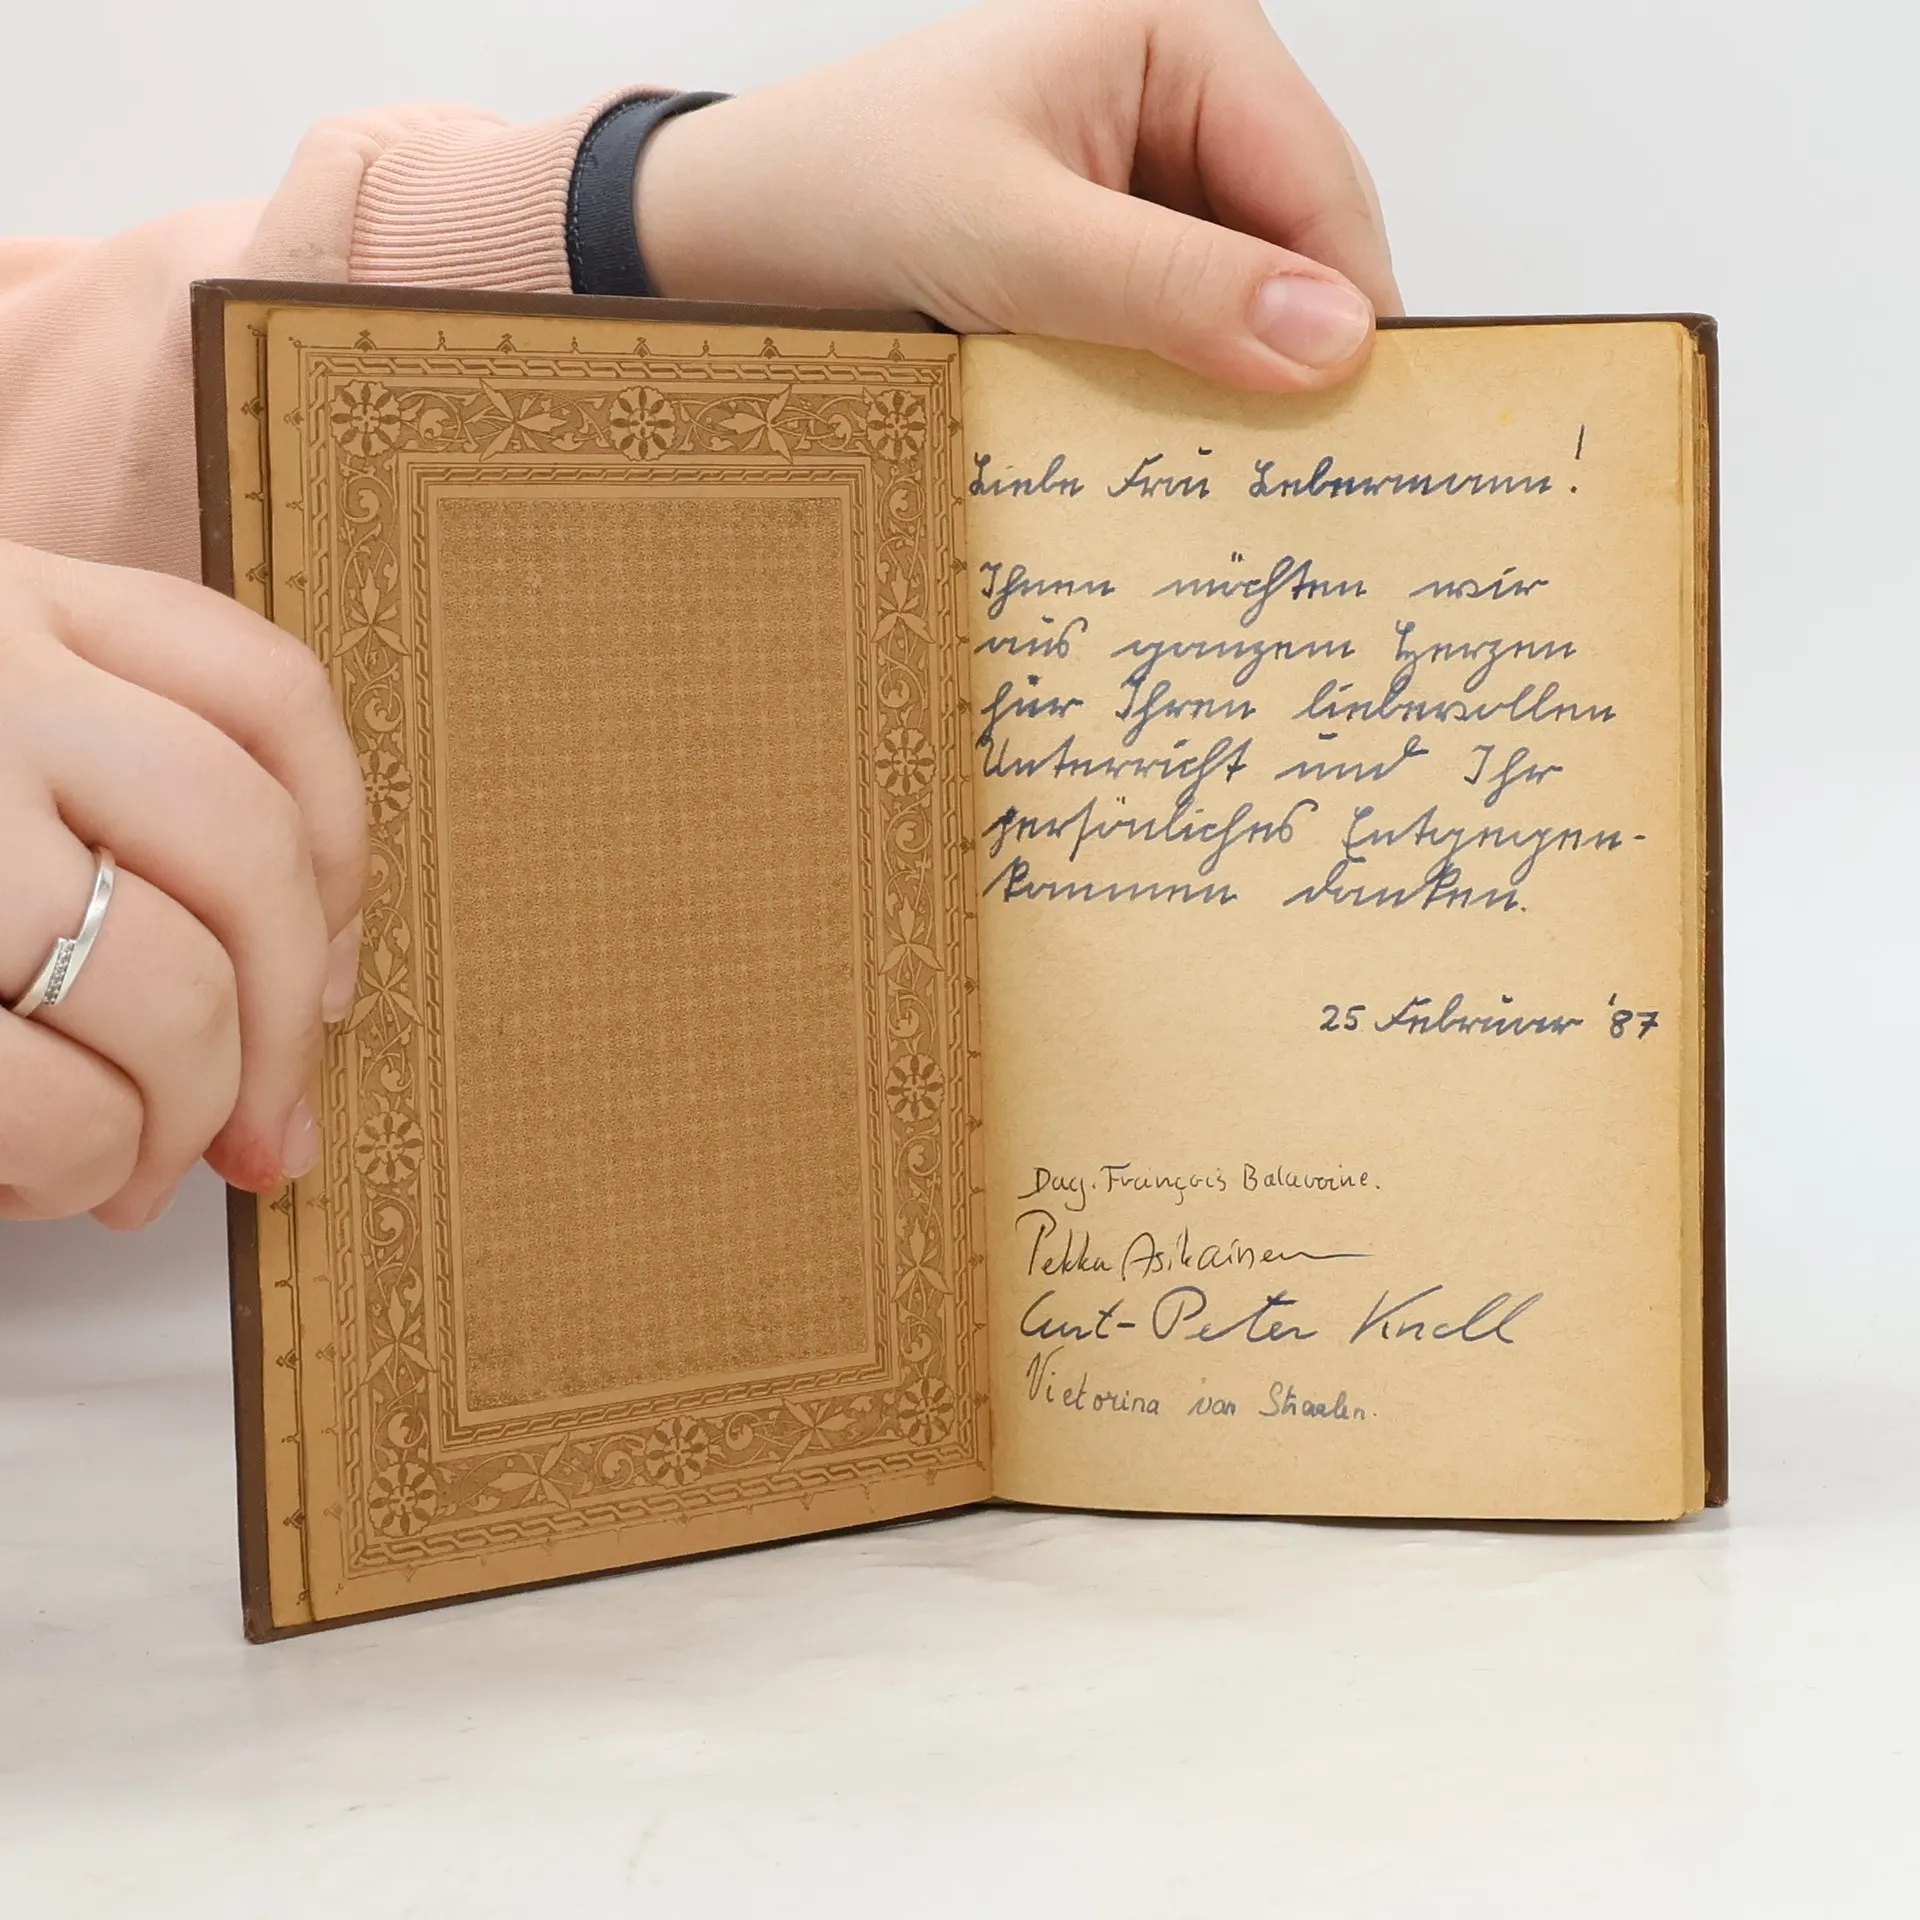 Liebe Frau Lebermann!
Ihnen möchten wir
aus ganzem Herzen
für Ihren liebevollen
Unterricht und Ihr
persönliches Entgegen-
kommen danken.
25 Februar '87
François Balavoine.
Pekka Asikainen
Curt-Peter Knoll
Victorina van